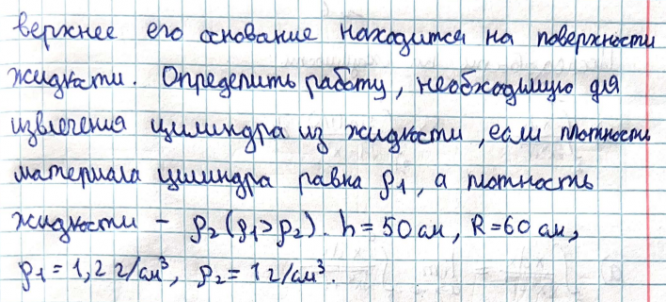 верхнее его основание находится на поверхности
жидкости. Определить работу, необходимую для
извлечения цилиндра из жидкости, если плотность
материала цилиндра равна ρ₁, а плотность
жидкости – ρ₂ (ρ₁>ρ₂). h = 50 см, R = 60 см,
ρ₁ = 1,2 г/см³, ρ₂ = 1 г/см³.